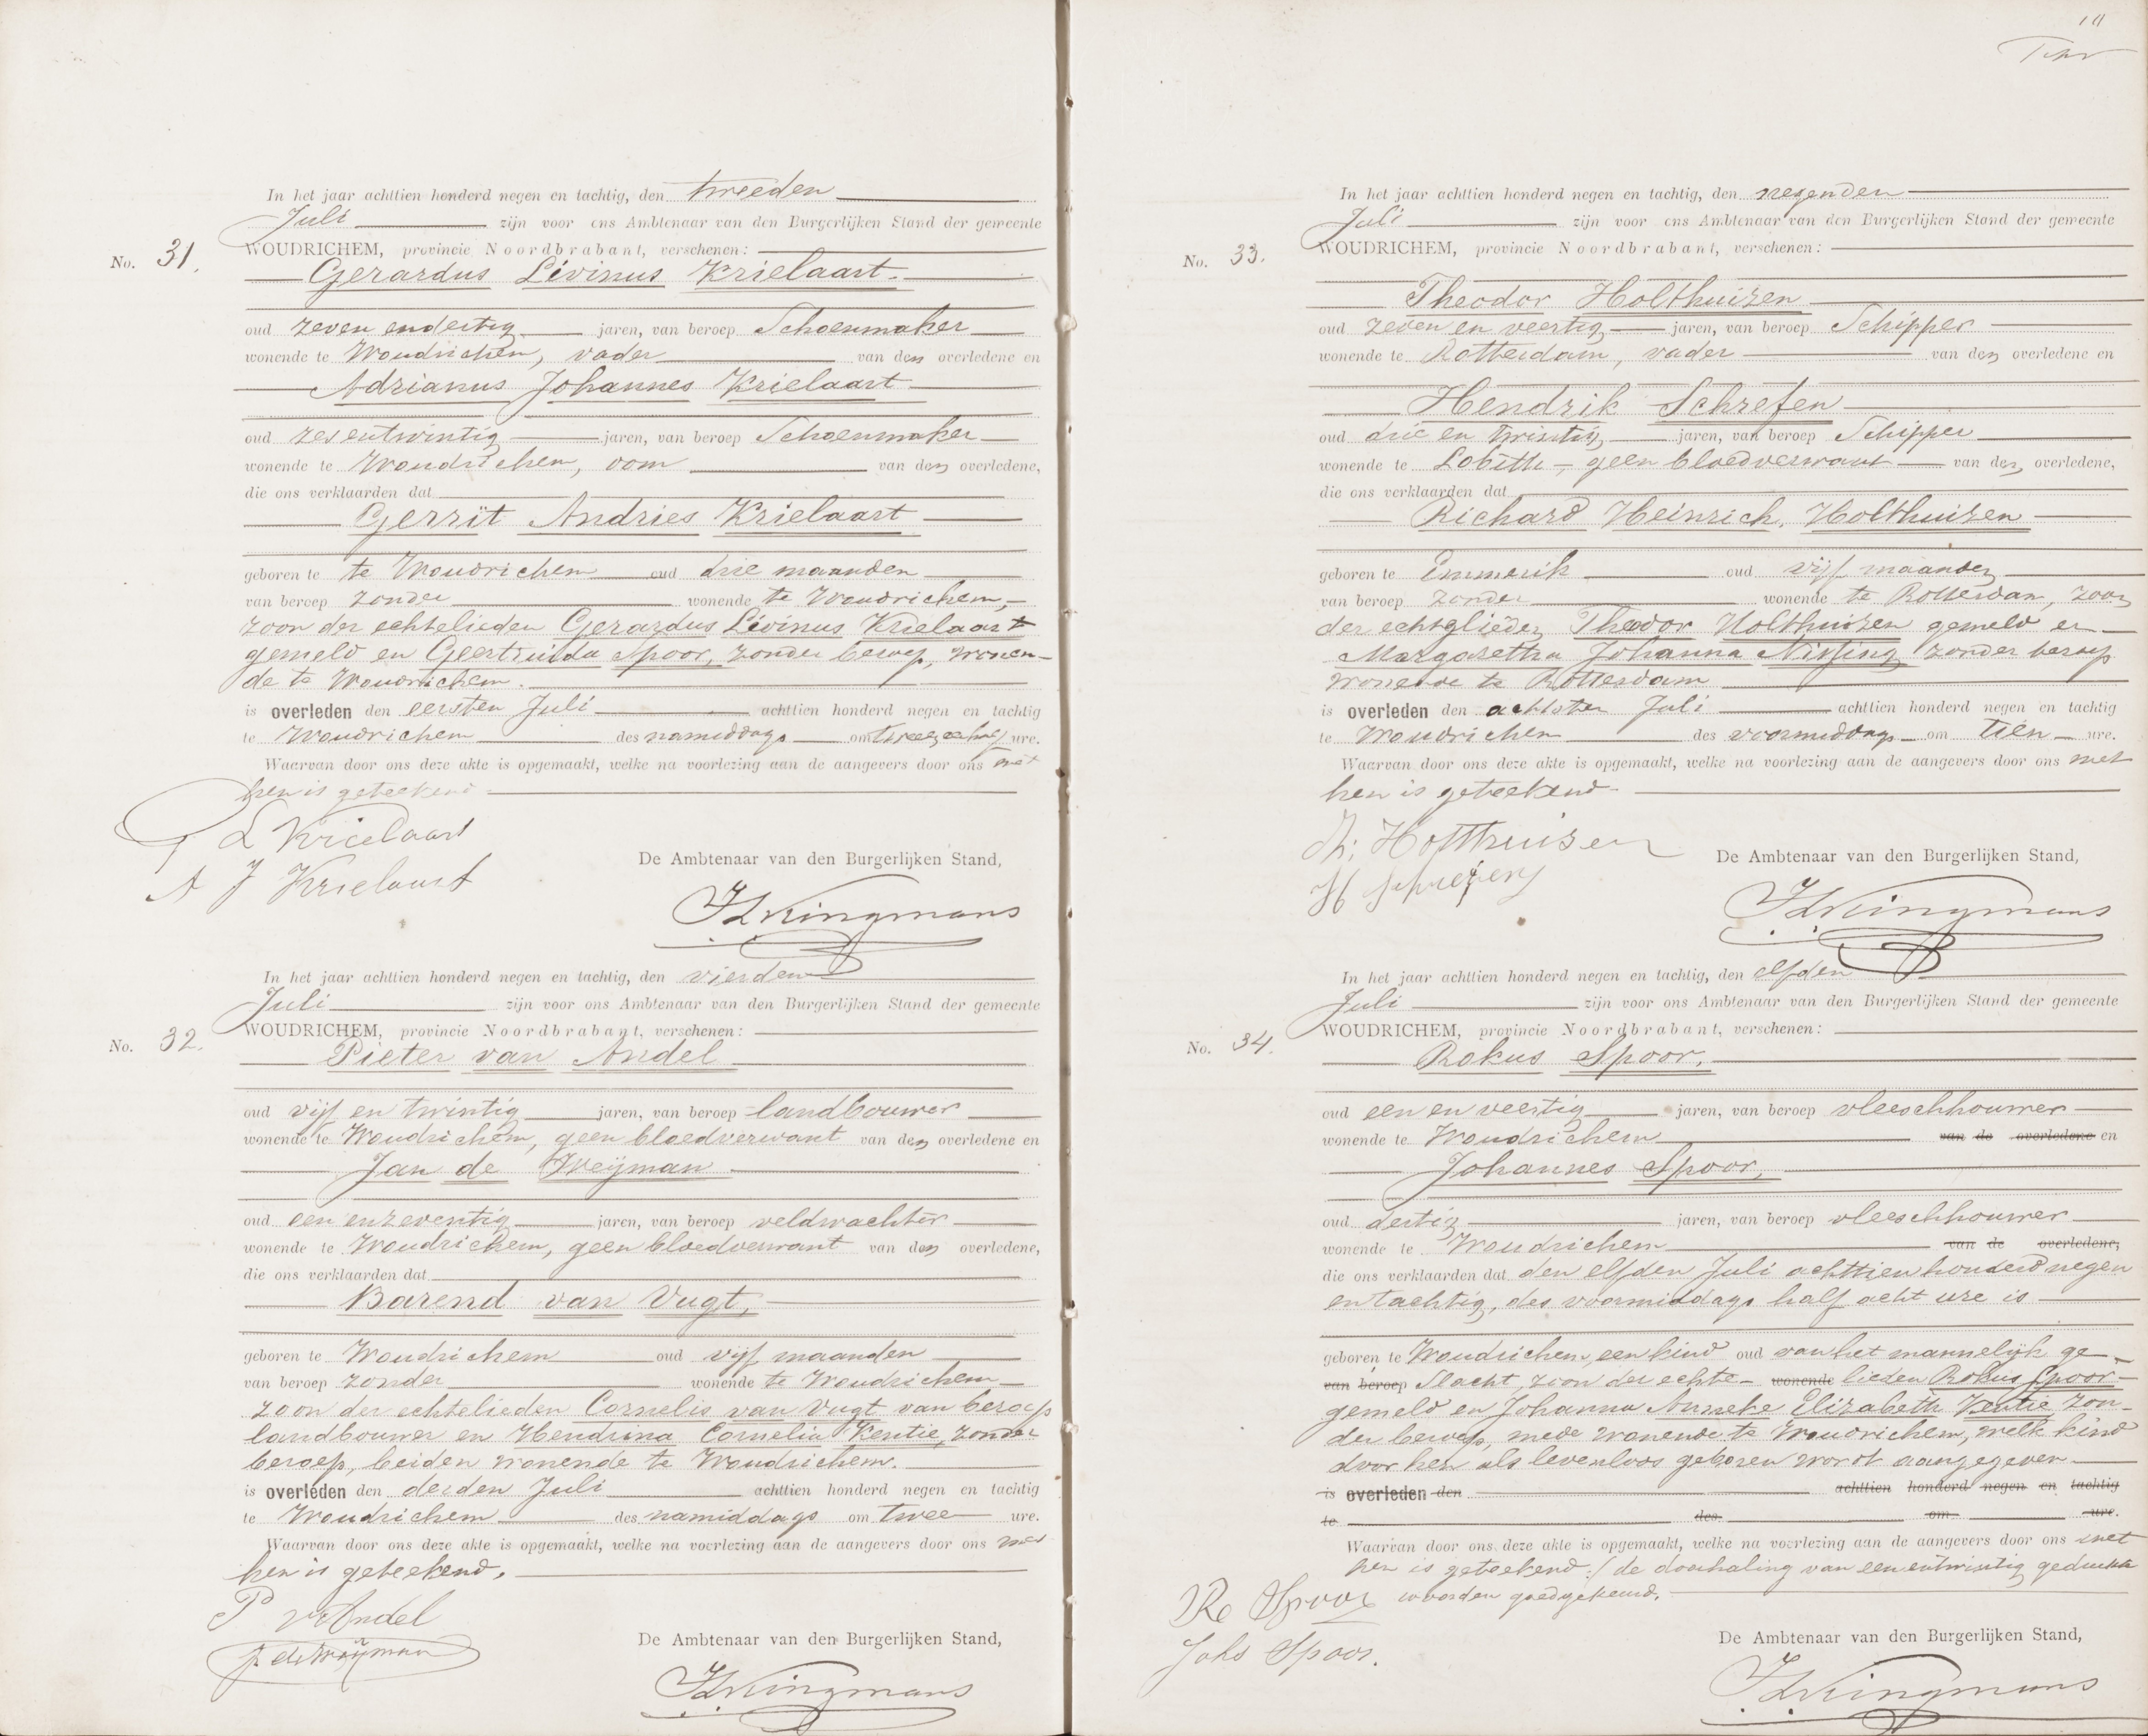 In het jaar achttien honderd negen en tachtig, den tweeden
Juli zijn voor ons Ambtenaar van den Burgerlijken Stand der gemeente
No. 31. WOUDRICHEM, provincie Noordbrabant, verschenen:
Gerardus Levinus Krielaart
oud zeven endertig jaren, van beroep Schoenmaker
wonende te Woudrichem, vader van den overledene en
Adrianus Johannes Krielaart
oud zesentwintig jaren, van beroep Schoenmaker
wonende te Woudrichem, oom van den overledene,
die ons verklaarden dat
Gerrit Andries Krielaart
geboren te te Woudrichem oud drie maanden
van beroep zonder wonende te Woudrichem,
zoon der echtelieden Gerardus Levinus Krielaart
gemeld en Geertruida Spoor, zonder beroep, wonen-
de te Woudrichem.
is overleden den eersten Juli achttien honderd negen en tachtig
te Woudrichem des namiddags om ure.
Waarvan door ons deze akte is opgemaakt, welke na voorlezing aan de aangevers door ons met
hen is geteekend
G L Krielaart
A J Krielaart
De Ambtenaar van den Burgerlijken Stand,
Kingmans
In het jaar achttien honderd negen en tachtig, den vierden
Juli zijn voor ons Ambtenaar van den Burgerlijken Stand der gemeente
No. 32. WOUDRICHEM, provincie Noordbrabant, verschenen:
Pieter van Andel
oud vijf en twintig jaren, van beroep landbouwer
wonende te Woudrichem, geen bloedverwant van den overledene en
Jan de Weijman
oud een enzeventig jaren, van beroep veldwachter
wonende te Woudrichem, geen bloedverwant van den overledene,
die ons verklaarden dat
Barend van Vugt,
geboren te Woudrichem oud vijf maanden
van beroep zonder wonende te Woudrichem
zoon der echtelieden Cornelis van Vugt van beroep
landbouwer en Hendrina Cornelia Kentie, zonder
beroep, beiden wonende te Woudrichem.
is overleden den derden Juli achttien honderd negen en tachtig
te Woudrichem des namiddags om twee ure.
Waarvan door ons deze akte is opgemaakt, welke na voorlezing aan de aangevers door ons met
hen is geteekend.
P v Andel
J. de Weijman
De Ambtenaar van den Burgerlijken Stand,
Kingmans
In het jaar achttien honderd negen en tachtig, den negenden
Juli zijn voor ons Ambtenaar van den Burgerlijken Stand der gemeente
No. 33. WOUDRICHEM, provincie Noordbrabant, verschenen:
Theodor Holthuizen
oud zeven en veertig jaren, van beroep Schipper
wonende te Rotterdam, vader van den overledene en
Hendrik Schrefen
oud drie en twintig jaren, van beroep Schipper
wonende te Lobith, geen bloedverwant van den overledene,
die ons verklaarden dat
Richard Heinrich, Holthuizen
geboren te Emmerik oud vijf maanden
van beroep zonder wonende te Rotterdam, zoon
der echteglieden Theodor Holthuizen gemeld en
Margaretha Johanna Nissing zonder beroep
wonende te Rotterdam
is overleden den achtsten Juli achttien honderd negen en tachtig
te Woudrichem des voormiddags om tien ure.
Waarvan door ons deze akte is opgemaakt, welke na voorlezing aan de aangevers door ons met
hen is geteekend.
Th: Holthuisen
H Schrefen
De Ambtenaar van den Burgerlijken Stand,
Kingmans
In het jaar achttien honderd negen en tachtig, den elfden
Juli zijn voor ons Ambtenaar van den Burgerlijken Stand der gemeente
No. 34. WOUDRICHEM, provincie Noordbrabant, verschenen:
Rokus Spoor,
oud een en veertig jaren, van beroep vleeschhouwer
wonende te Woudrichem van de overledene en
Johannes Spoor,
oud dertig jaren, van beroep vleeschhouwer
wonende te Woudrichem van de overledene,
die ons verklaarden dat den elfden Juli achttienhonderd negen
entachtig, des voormiddags half acht ure is
geboren te Woudrichem, een kind oud van het mannelijk ge-
van beroep slacht, zoon der echte- wonende lieden Rokus Spoor
gemeld en Johanna Anneke Elizabeth Kentie zon-
der beroep, mede wonende te Woudrichem, welk kind
door hen als levenloos geboren wordt aangegeven
is overleden den achttien honderd negen en tachtig
te des om ure.
Waarvan door ons deze akte is opgemaakt, welke na voorlezing aan de aangevers door ons met
hen is geteekend:/ de doorhaling van eenentwintig gedrukte
woorden goedgekeurd.
Ro Spoor
Johs Spoor.
De Ambtenaar van den Burgerlijken Stand,
Kingmans